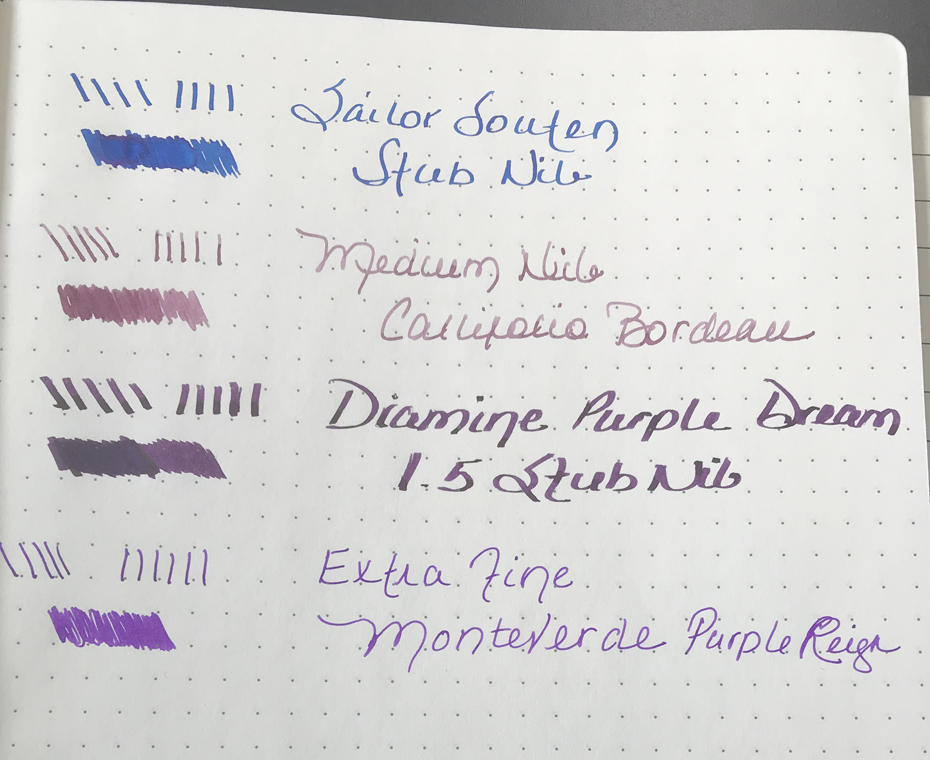 Sailor Souten
Stub Nib
Medium Nib
Bordeau
Diamine Purple Dream
1.5 Stub Nib
Extra Fine
Monteverde Purple Reign